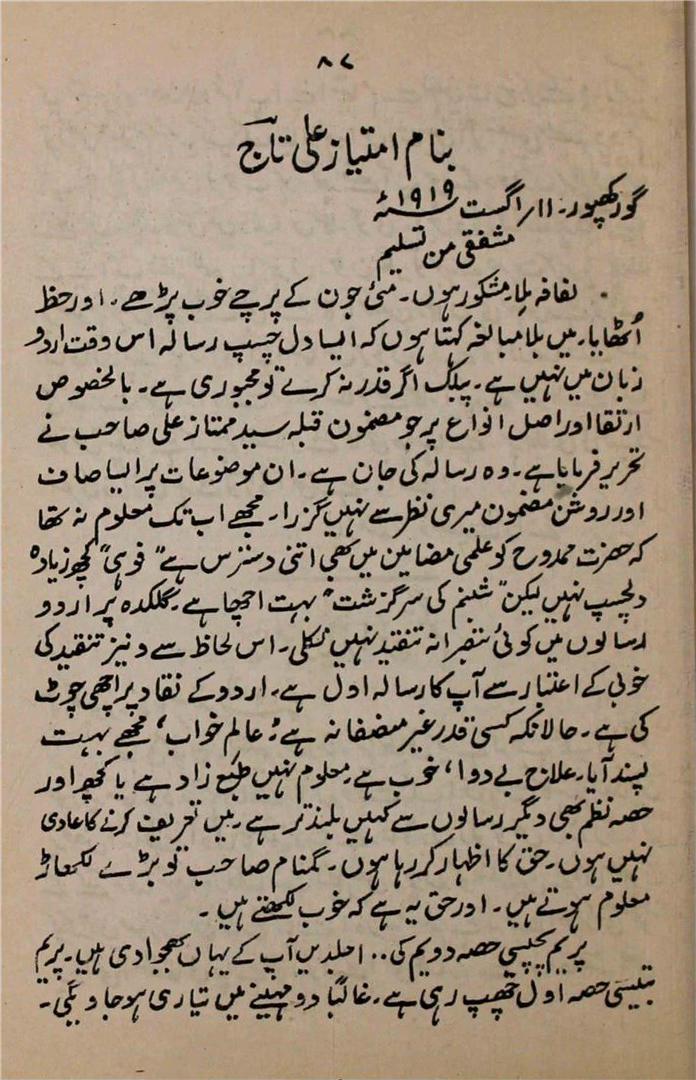 ۸۷
بنام امتیاز علی تاج
گورکھپور۔ ۱۱/اگست ۱۹۱۹ء
مشفقی من تسلیم
لفافہ ملا، مشکور ہوں۔ مئی جون کے پرچے خوب پڑھے۔ اور حظ
اُٹھایا۔ میں بلا مبالغہ کہتا ہوں کہ ایسا دل چسپ رسالہ اس وقت اردو
زبان میں نہیں ہے۔ پبلک اگر قدر نہ کرے تو مجبوری ہے۔ بالخصوص
ارتقا اور اصل انواع پر جو مضمون قبلہ سید ممتاز علی صاحب نے
تحریر فرمایا ہے۔ وہ رسالہ کی جان ہے۔ ان موضوعات پر ایسا صاف
اور روشن مضمون میری نظر سے نہیں گزرا۔ مجھے اب تک معلوم نہ تھا
کہ حضرت ممدوح کو علمی مضامین میں بھی اتنی دسترس ہے "فوہی" کچھ زیادہ
دلچسپ نہیں لیکن "شبنم کی سرگزشت" بہت اچھا ہے۔ گلکدہ پر اردو
رسالوں میں کوئی مبصرانہ تنقید نہیں نکلی۔ اس لحاظ سے و نیز تنقید کی
خوبی کے اعتبار سے آپ کا رسالہ اول ہے۔ اردو کے نقاد پر اچھی چوٹ
کی ہے۔ حالانکہ کسی قدر غیر منصفانہ ہے۔ 'عالم خواب' مجھے بہت
پسند آیا۔ علاج بے دوا' خوب ہے۔ معلوم نہیں طبع زاد ہے یا کچھ اور
حصہ نظم بھی دیگر رسالوں سے کہیں بلند تر ہے۔ میں تعریف کرنے کا عادی
نہیں ہوں۔ حق کا اظہار کر رہا ہوں۔ گمنام صاحب تو بڑے لکھاڑ
معلوم ہوتے ہیں۔ اور حق یہ ہے کہ خوب لکھتے ہیں۔
پریم پچیسی حصہ دویم کی.. ا جلدیں آپ کے یہاں بھجوا دی ہیں۔ پریم
بتیسی حصہ اول چھپ رہی ہے۔ غالباً دو مہینے میں تیاری ہو جاویگی۔